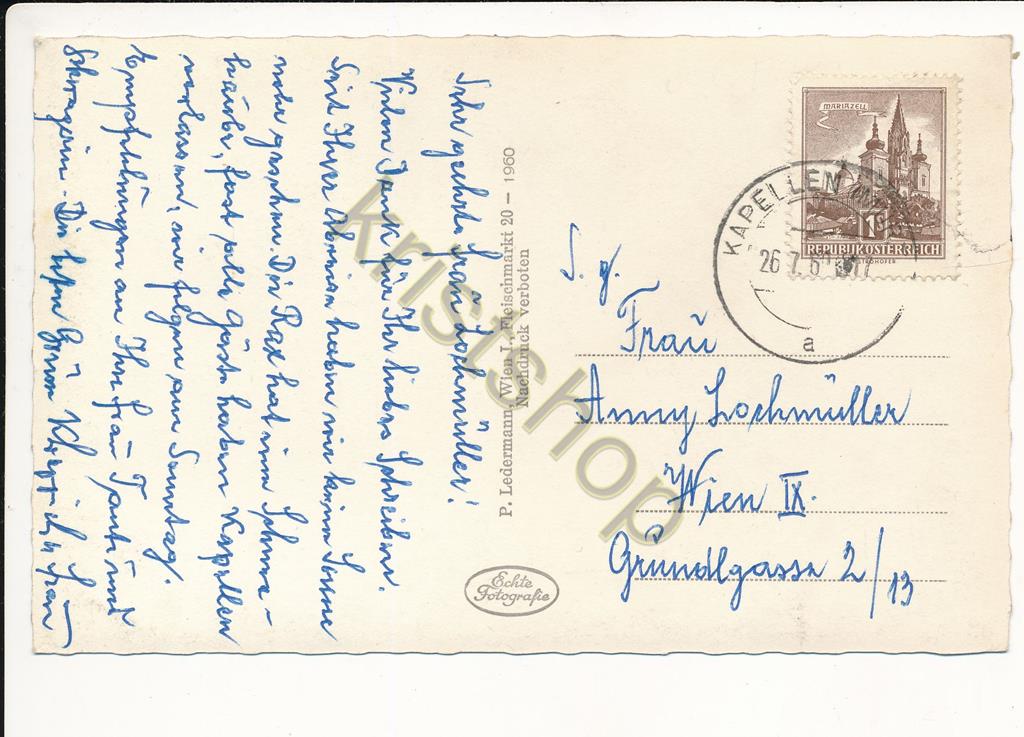 Sehr geehrte Frau Lochmüller!
Vielen Dank für Ihr liebes Schreiben.
Seit Ihrer Abreise haben wir keine Sonne
mehr gesehen. Die Rax hat eine Schnee-
haube, fast alle Gäste haben Kapellen
verlassen, wir folgen am Sonntag.
Empfehlungen an Ihre Frau Tante und
Schwägerin. Die besten Grüsse
P. Ledermann, Wien I., Fleischmarkt 20 – 1960
Nachdruck verboten
Echte
Fotografie
MARIAZELL
1S
REPUBLIK ÖSTERREICH
KAPELLEN
26. 7. 6
a
S. g.
Frau
Anny Lochmüller
Wien IX.
Grundlgasse 2/13
kristshop